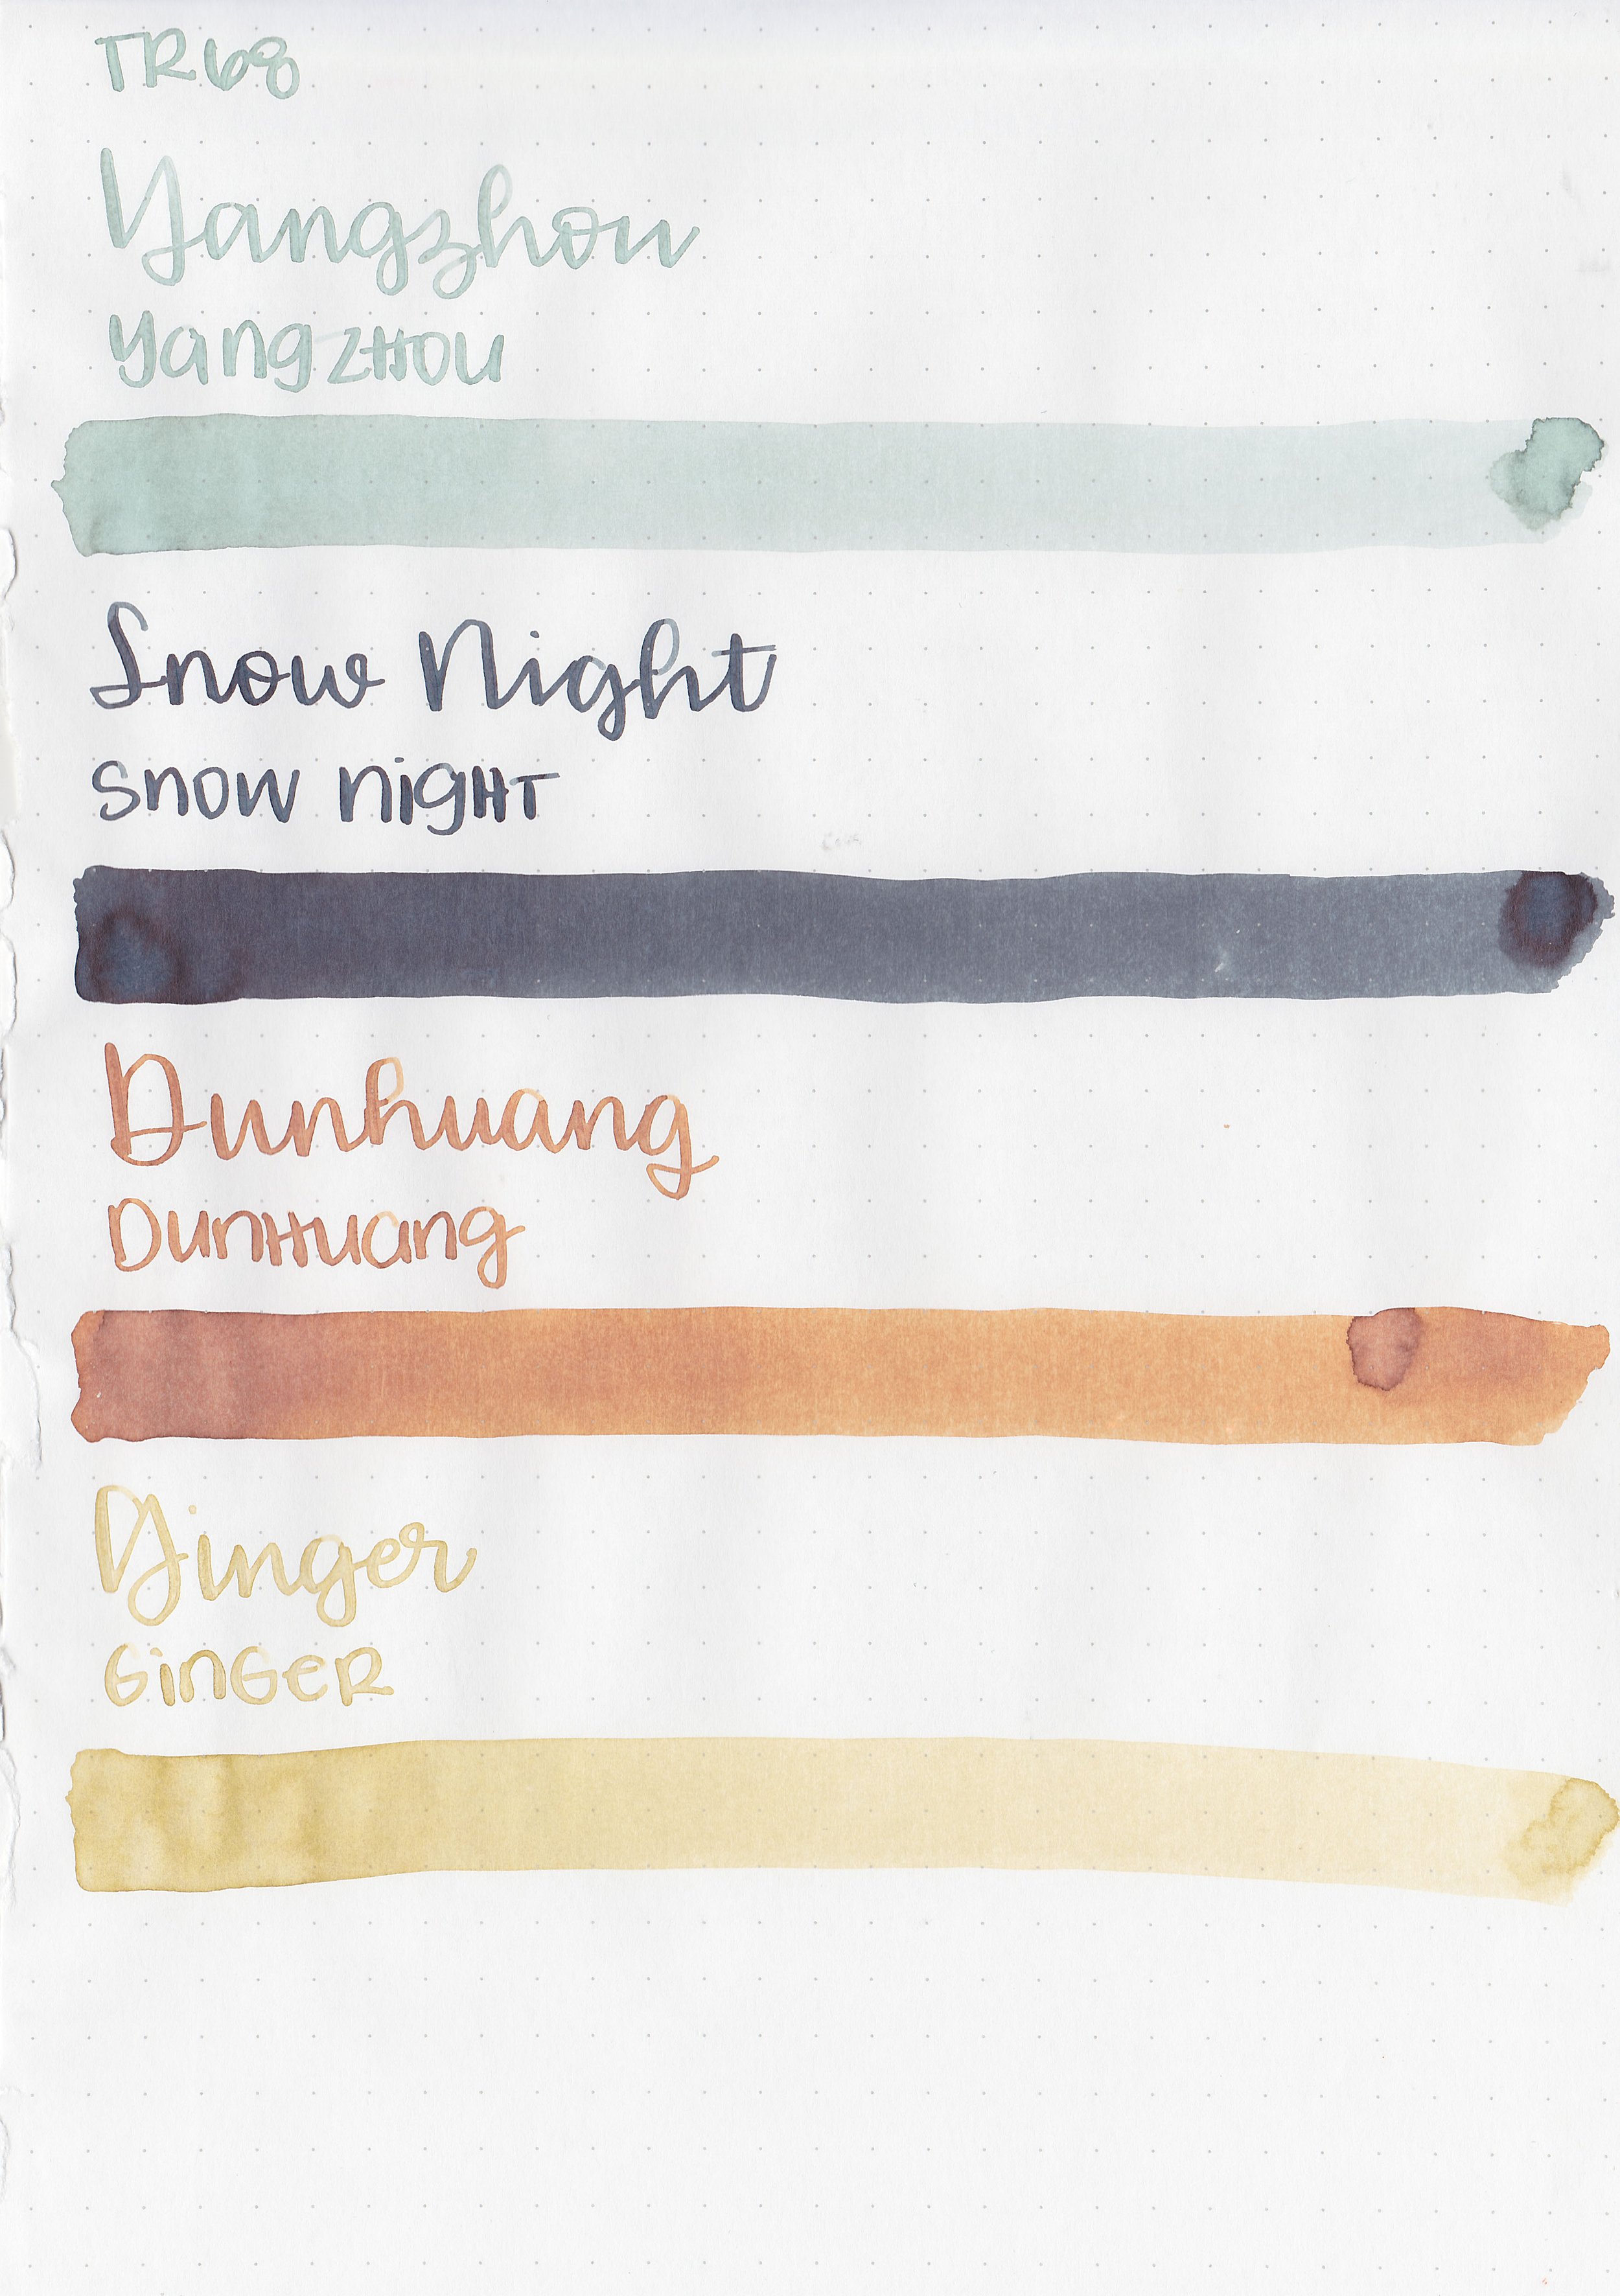 TR68
Yangzhou
yangzHou
Snow Night
snow nigHT
Dunhuang
DunHuang
Ginger
GinGER